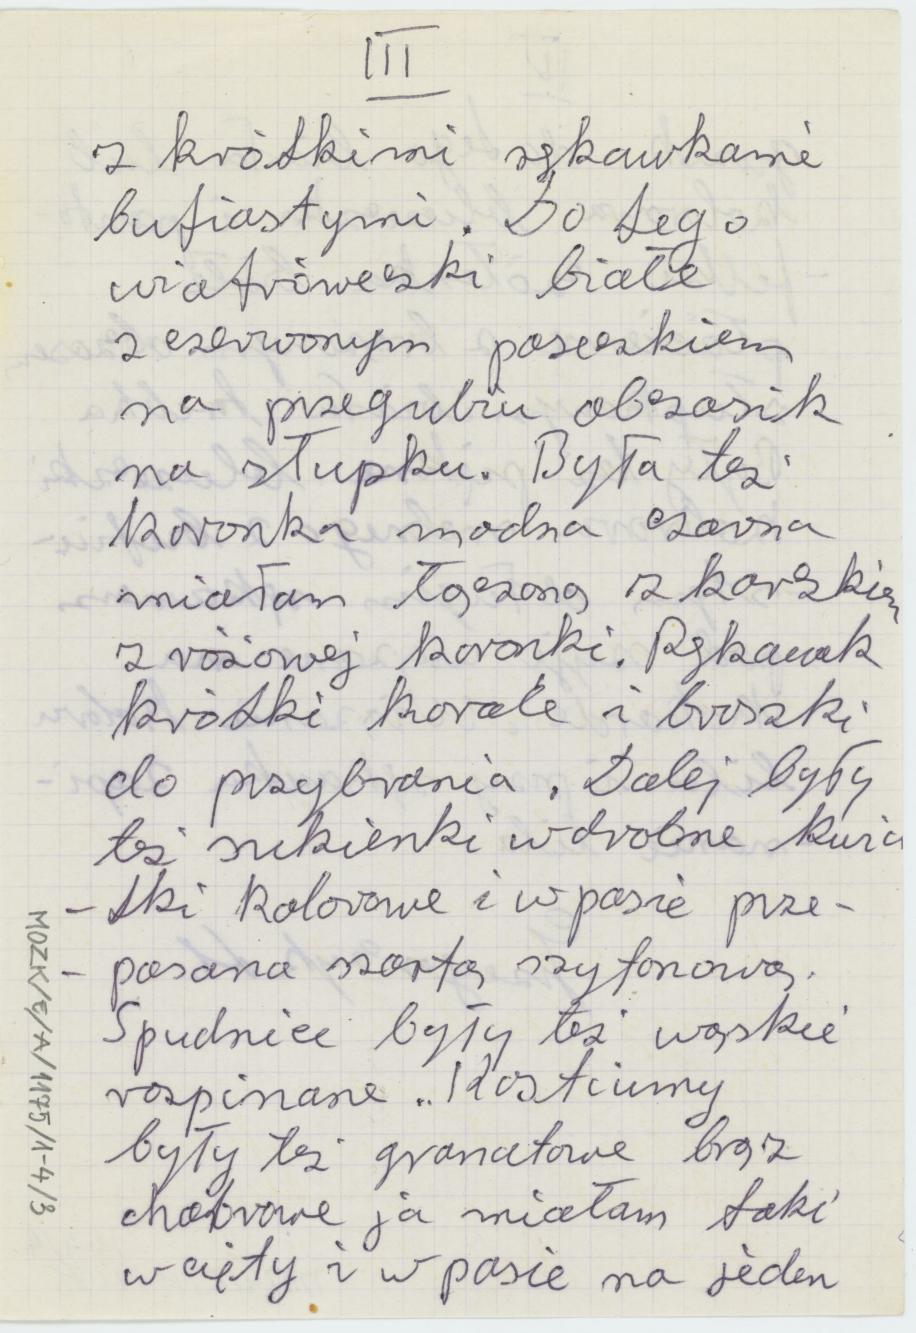 III
z krótkimi rękawkami
bufiastymi. Do tego
wiatróweczki białe
z czerwonym paseczkiem
na przegubiu obczasik
na słupku. Była też
koronka modna czarna
miałam łączoną z karczkiem
z różowej koronki. Rękawek
krótki korale i broszki
do przybrania. Dalej były
też sukienki w drobne kwia
- tki kolorowe i w pasie prze-
- pasana szarfą szyfonową.
Spudnice były też wąskie
rozpinane.. Kostiumy
były też granatowe brąz
chabrowe ja miałam taki
wcięty i w pasie na jeden
MOZK/E/A/1175/1-4/3